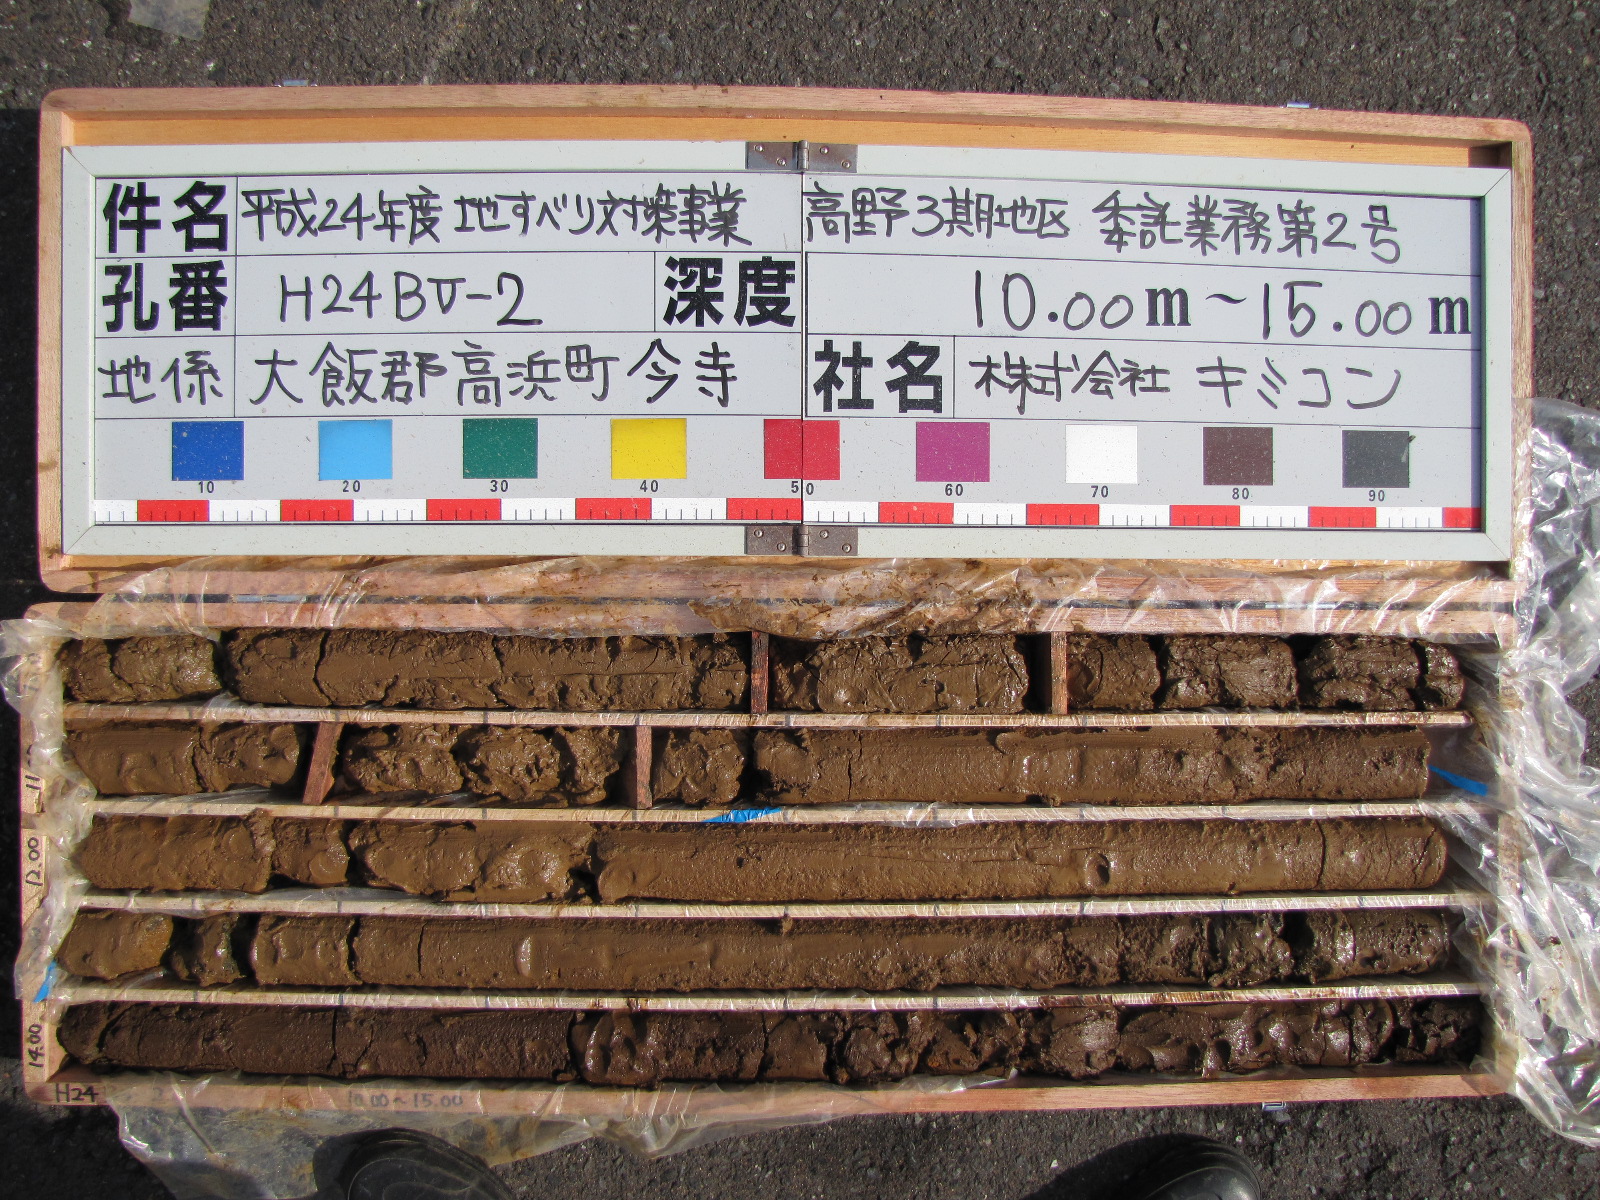 件名 平成24年度 地すべり対策事業 高野3期地区 委託業務第2号
孔番 H24BV-2 深度 10.00m~15.00m
地係 大飯郡高浜町今寺 社名 株式会社 キミコン
10 20 30 40 50 60 70 80 90
12.00
14.00
H24 2 10.00~15.00